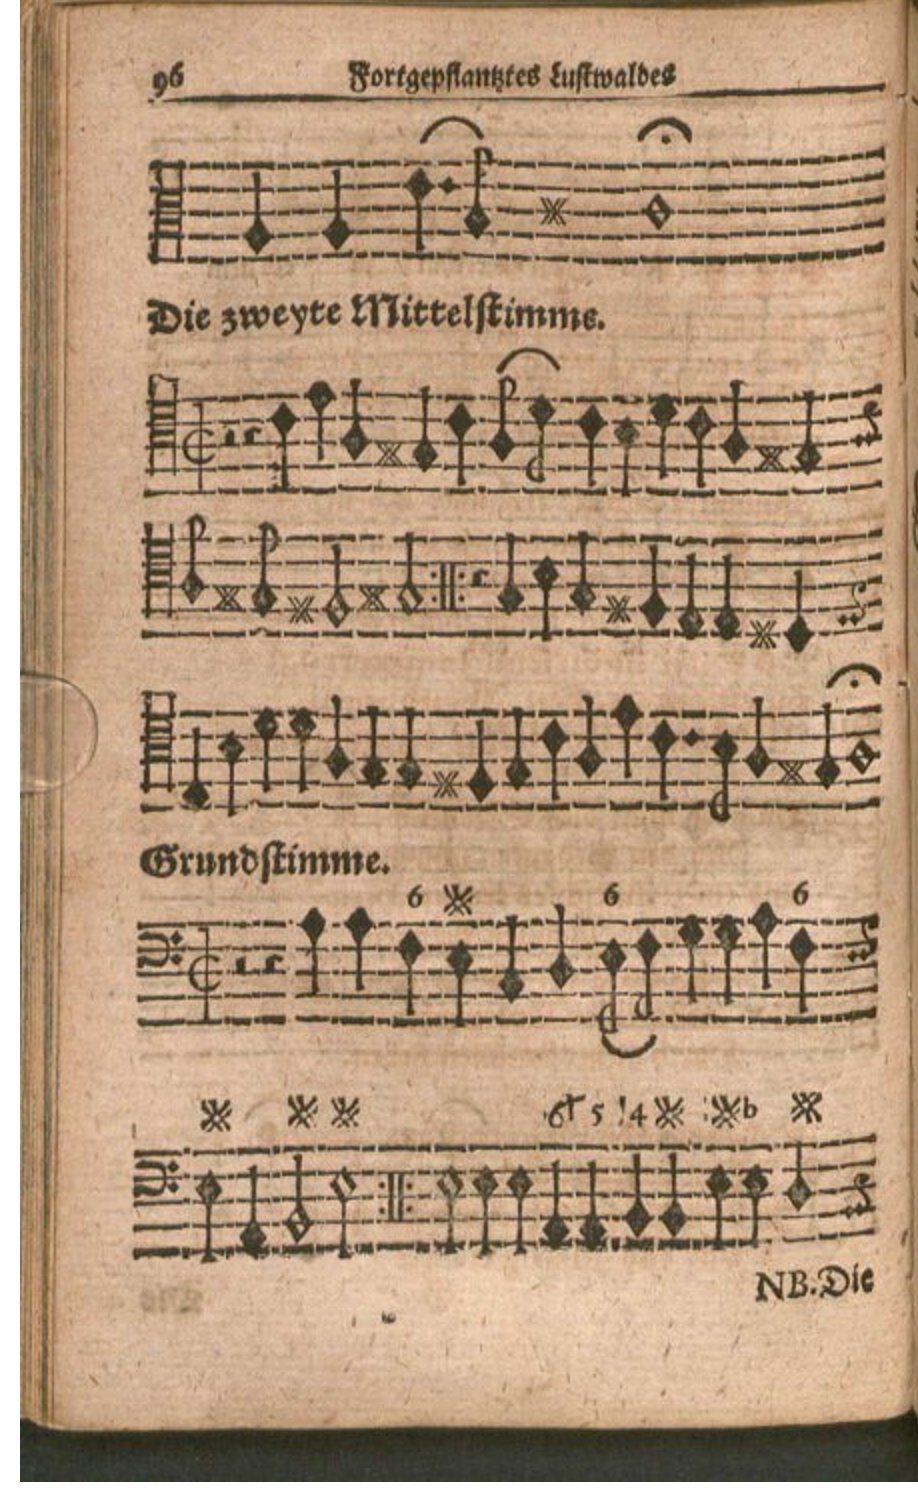 96 Fortgepflantztes Lustwaldes
Die zweyte Mittelstimme.
Grundstimme.
6 6 6
6† 5 4 b
NB. Die